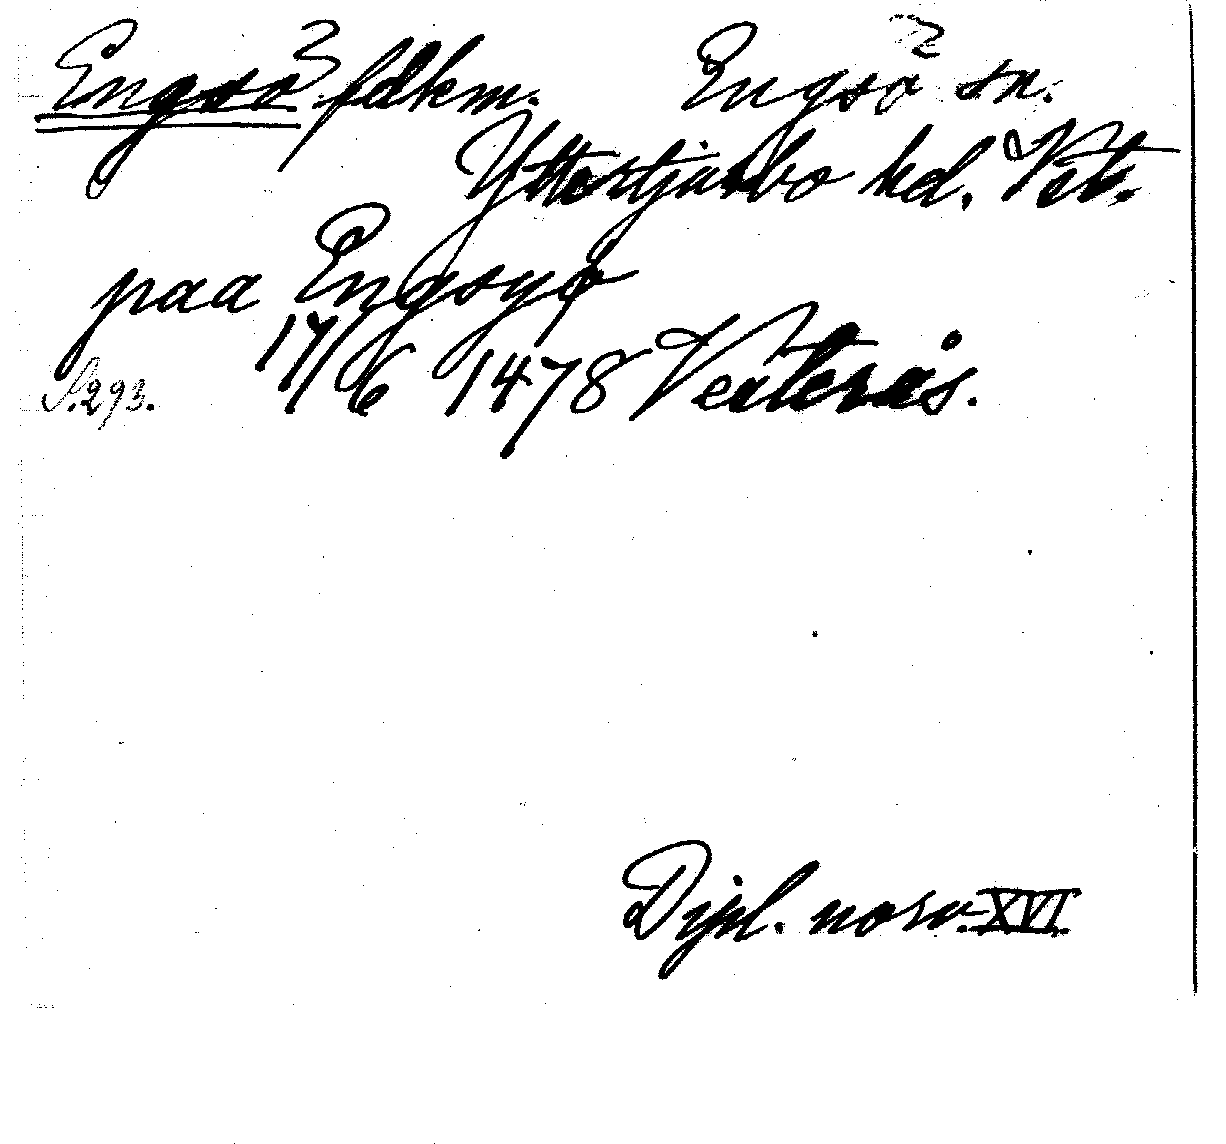 Engsö fdkm. Engsö sn.
Yttertjurbo hd. Vstm.
paa Engsyø
S. 293. 17/6 1478 Vesterås.
Dipl. norv. XVI.